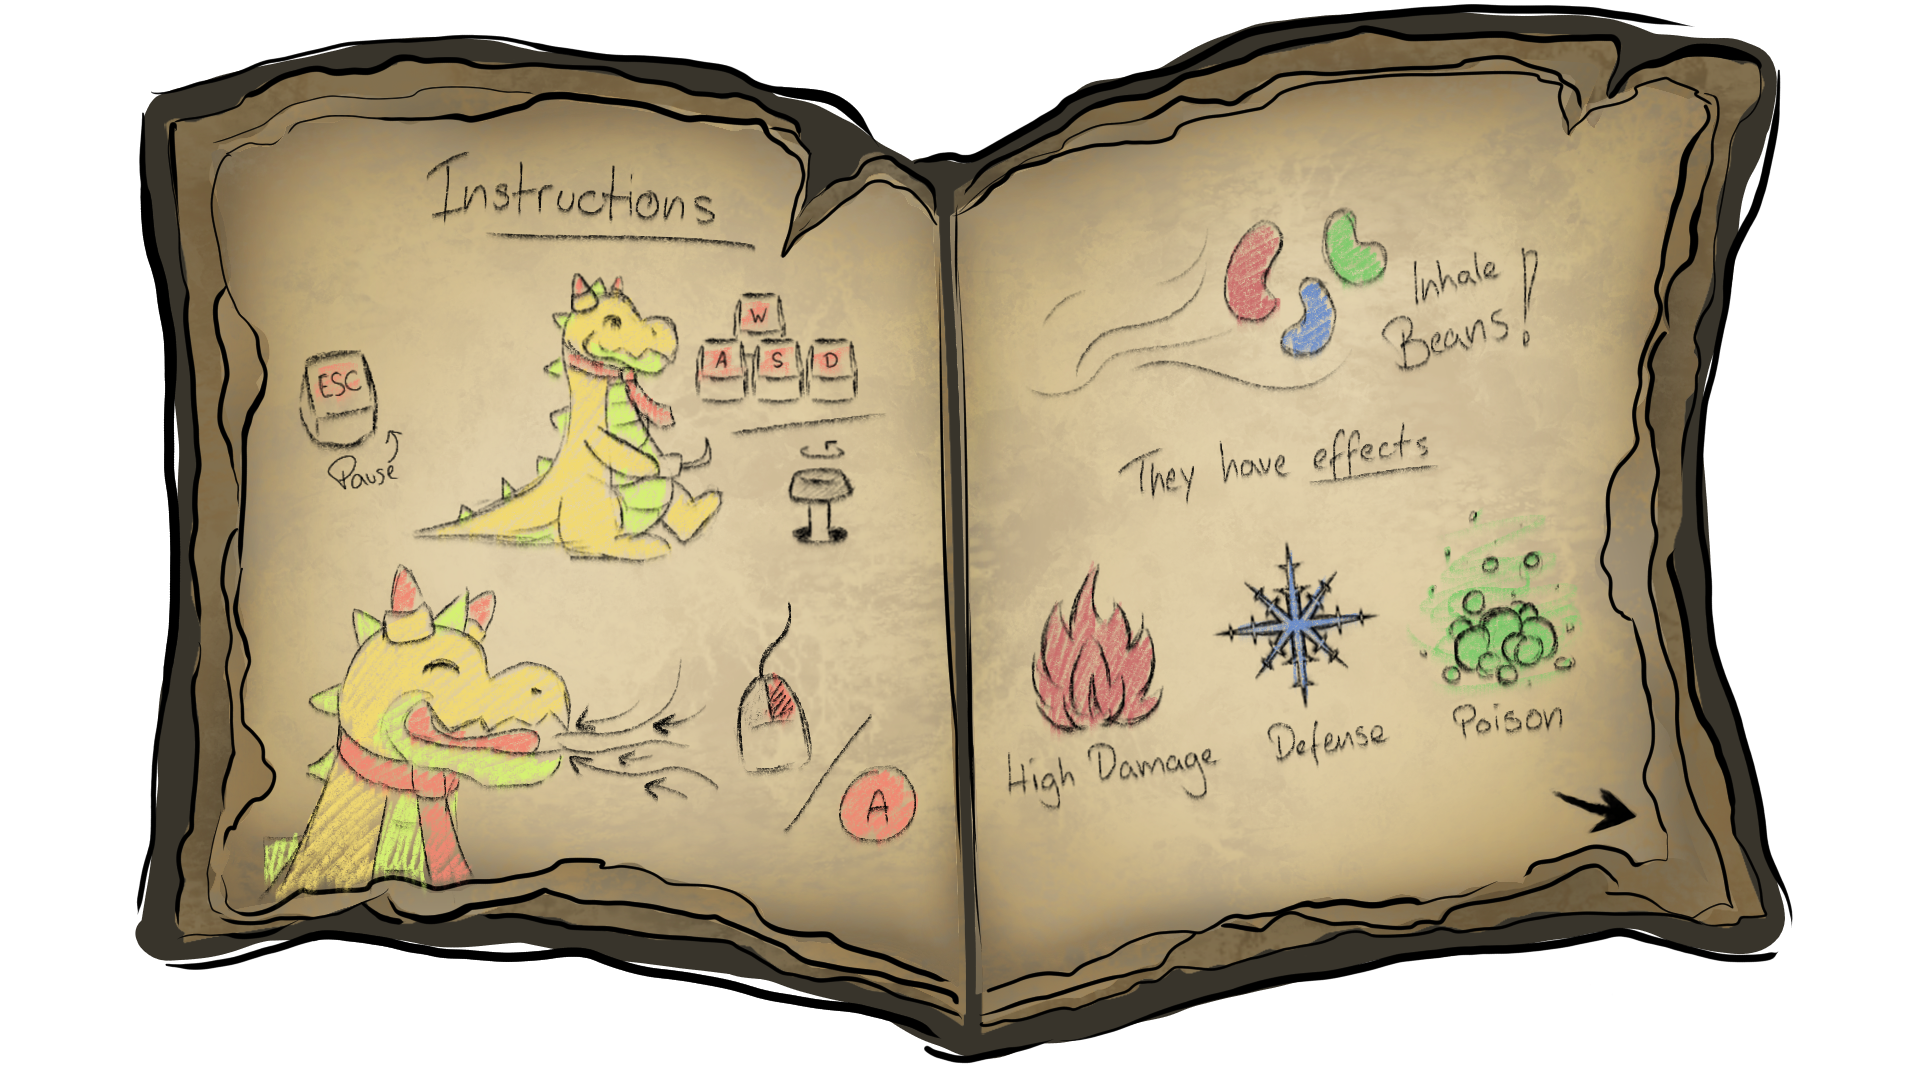 Instructions
ESC
Pause
W
A S D
A
Inhale
Beans!
They have effects
High Damage
Defense
Poison